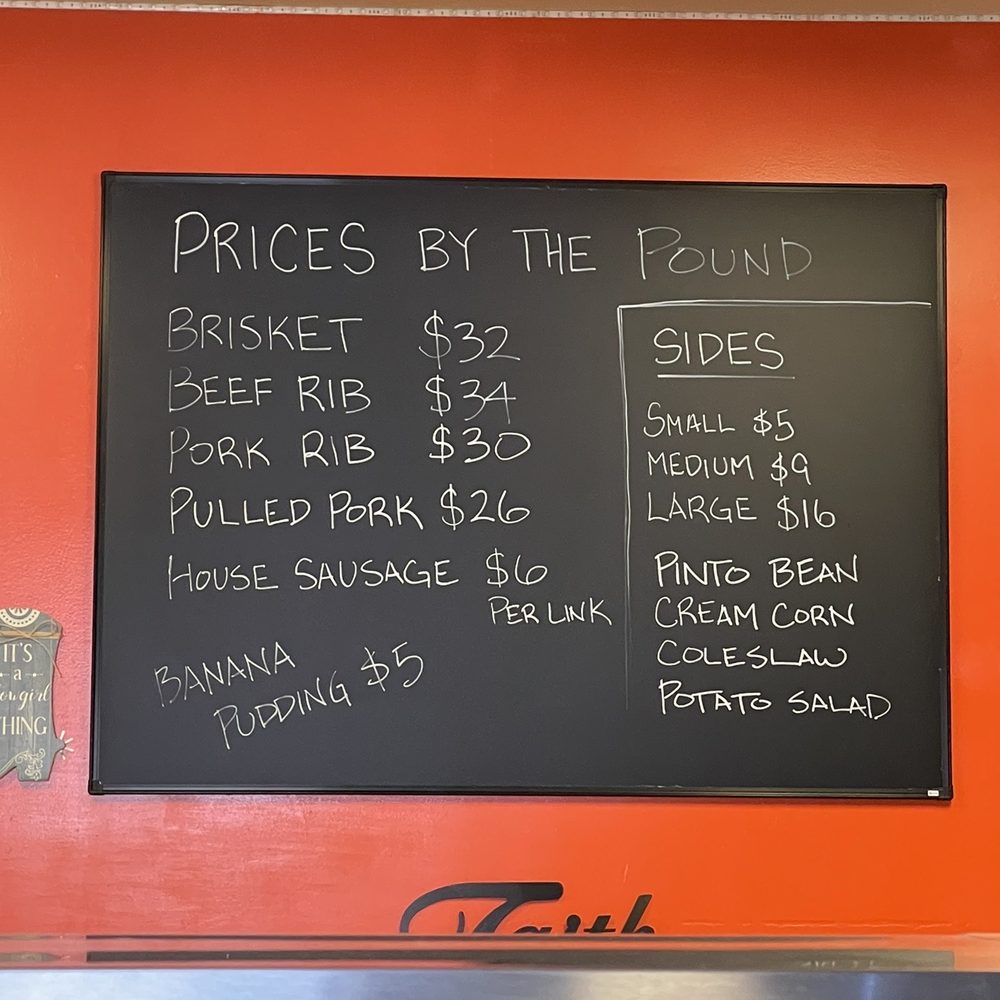 PRICES BY THE POUND
BRISKET $32
BEEF RIB $34
PORK RIB $30
PULLED PORK $26
HOUSE SAUSAGE $6
PER LINK
BANANA
PUDDING $5
SIDES
SMALL $5
MEDIUM $9
LARGE $16
PINTO BEAN
CREAM CORN
COLESLAW
POTATO SALAD
IT'S
a
THING
Faith